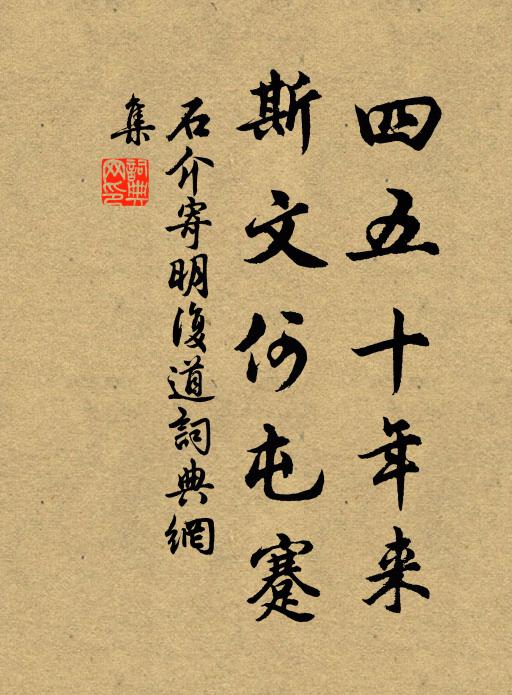 四五十年来
斯文何屯蹇
石介寄明復道詞典網
集
詞典網印